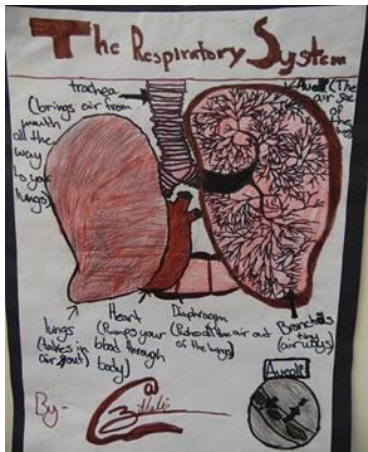 The Respiratory System
trachea
(brings air from
mouth
all the
way
to your
lungs)
(The
air sac
of the
lungs
(takes in
air & out)
Heart
(Pumps your
blood through
body)
Diaphragm
(Pushes all the air out
of the lungs)
(air ways)
Aveoli
By-